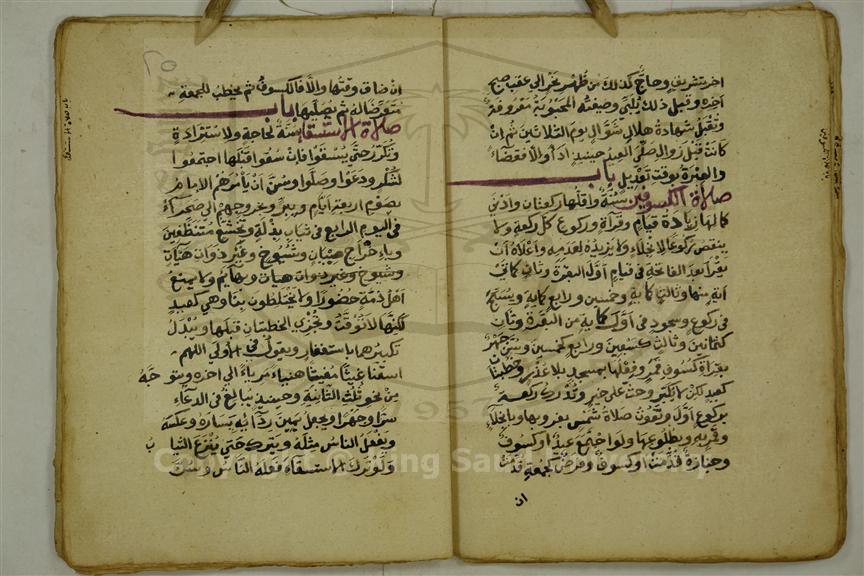 اخر تشريق وحاج كذلك من ظهر نحر الى عقب صبح
آخره وقبل ذلك يلبى وصيغته المحبوبة معروفة
وتقبل شهادة هلال شوال يوم الثلاثين ثم ان
كانت قبل زوال صلى العيد حينيذ اداءً والا فقضاء
والعبرة بوقت تعديل باب
صلاة الكسوفين سنة واقلها ركعتان وادنى
كمالها زيادة قيام وقراة وركوع كل ركعة ولا
ينقص ركوعا لانجلاء ولا يزيده لعدمه واعلاه ان
يقرا بعد الفاتحة في قيام اول البقرة وثان كماتى
آية منها وثالث كماية وخمسين ورابع كماية ويسبح
في ركوع وسجود في اول كماية من البقرة وثان
كثمانين وثالث كسبعين ورابع كخمسين وسن جهر
بقراة كسوف قمر وفعلها بمسجد بلا عذر وخطبتان
كعيد لكن لا يكبر وحث على خير وتدرك ركعة
بركوع اول وتفوت صلاة شمس بغروبها وبانجلاء
وقمر به وبطلوعها ولو اجتمع عيد او كسوف
وجنازة قدمت او كسوف وفرض كجمعة قدم
ان
ان ضاق وقتها والا فالكسوف ثم يخطب للجمعة
متعرضا له ثم يصليها باب
صلاة الاستسقا سنة لحاجة ولاستزادة
وتكرر حتى يسقوا فان سقوا قبلها اجتمعوا
لشكر ودعوا وصلوا وسن ان يامرهم الامام
بصوم اربعة ايام وببر وبخروجهم الى صحراء
في اليوم الرابع في ثياب بذلة وتخشع متنظفين
وباخراج صبيان وشيوخ وغير ذوات هيآت
وشيوخ وغير ذوات هيات وبهايم ولا يمنع
اهل ذمة حضورا ولا يختلطون بنا وهي كعيد
لكنها لا توقت وتجزي الخطبتان قبلها ويبدل
تكبيرهما باستغفار ويقول في الاولى اللهم
اسقنا غيثا مغيثا هنياء مرياء الى اخره ويتوجه
من نحو ثلث الثانية وحينيذ يبالغ في الدعاء
سرا وجهرا ويجعل يمين ردآيه يساره وعكسه
ويفعل الناس مثله ويترك حتى ينزع الثياب
ولو ترك الاستسقاء فعله الناس وسن
Copyright © King Saud University
1957